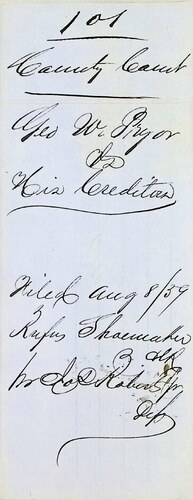 101
County Court
Geo W. Pryor
vs
His Creditors
Filed Aug 8/59
Rufus Shoemaker
Clk
Dep